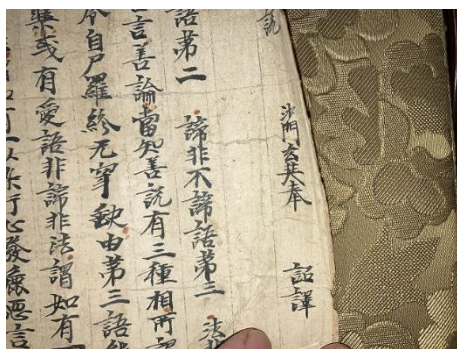 說 沙門玄奘奉 詔譯
語第二 諦非不諦語第三 法
言善論當知善說有三種相所
自尸羅終无穿缺由第三語
樂或有愛語非諦非法謂如有
心發麁惡言